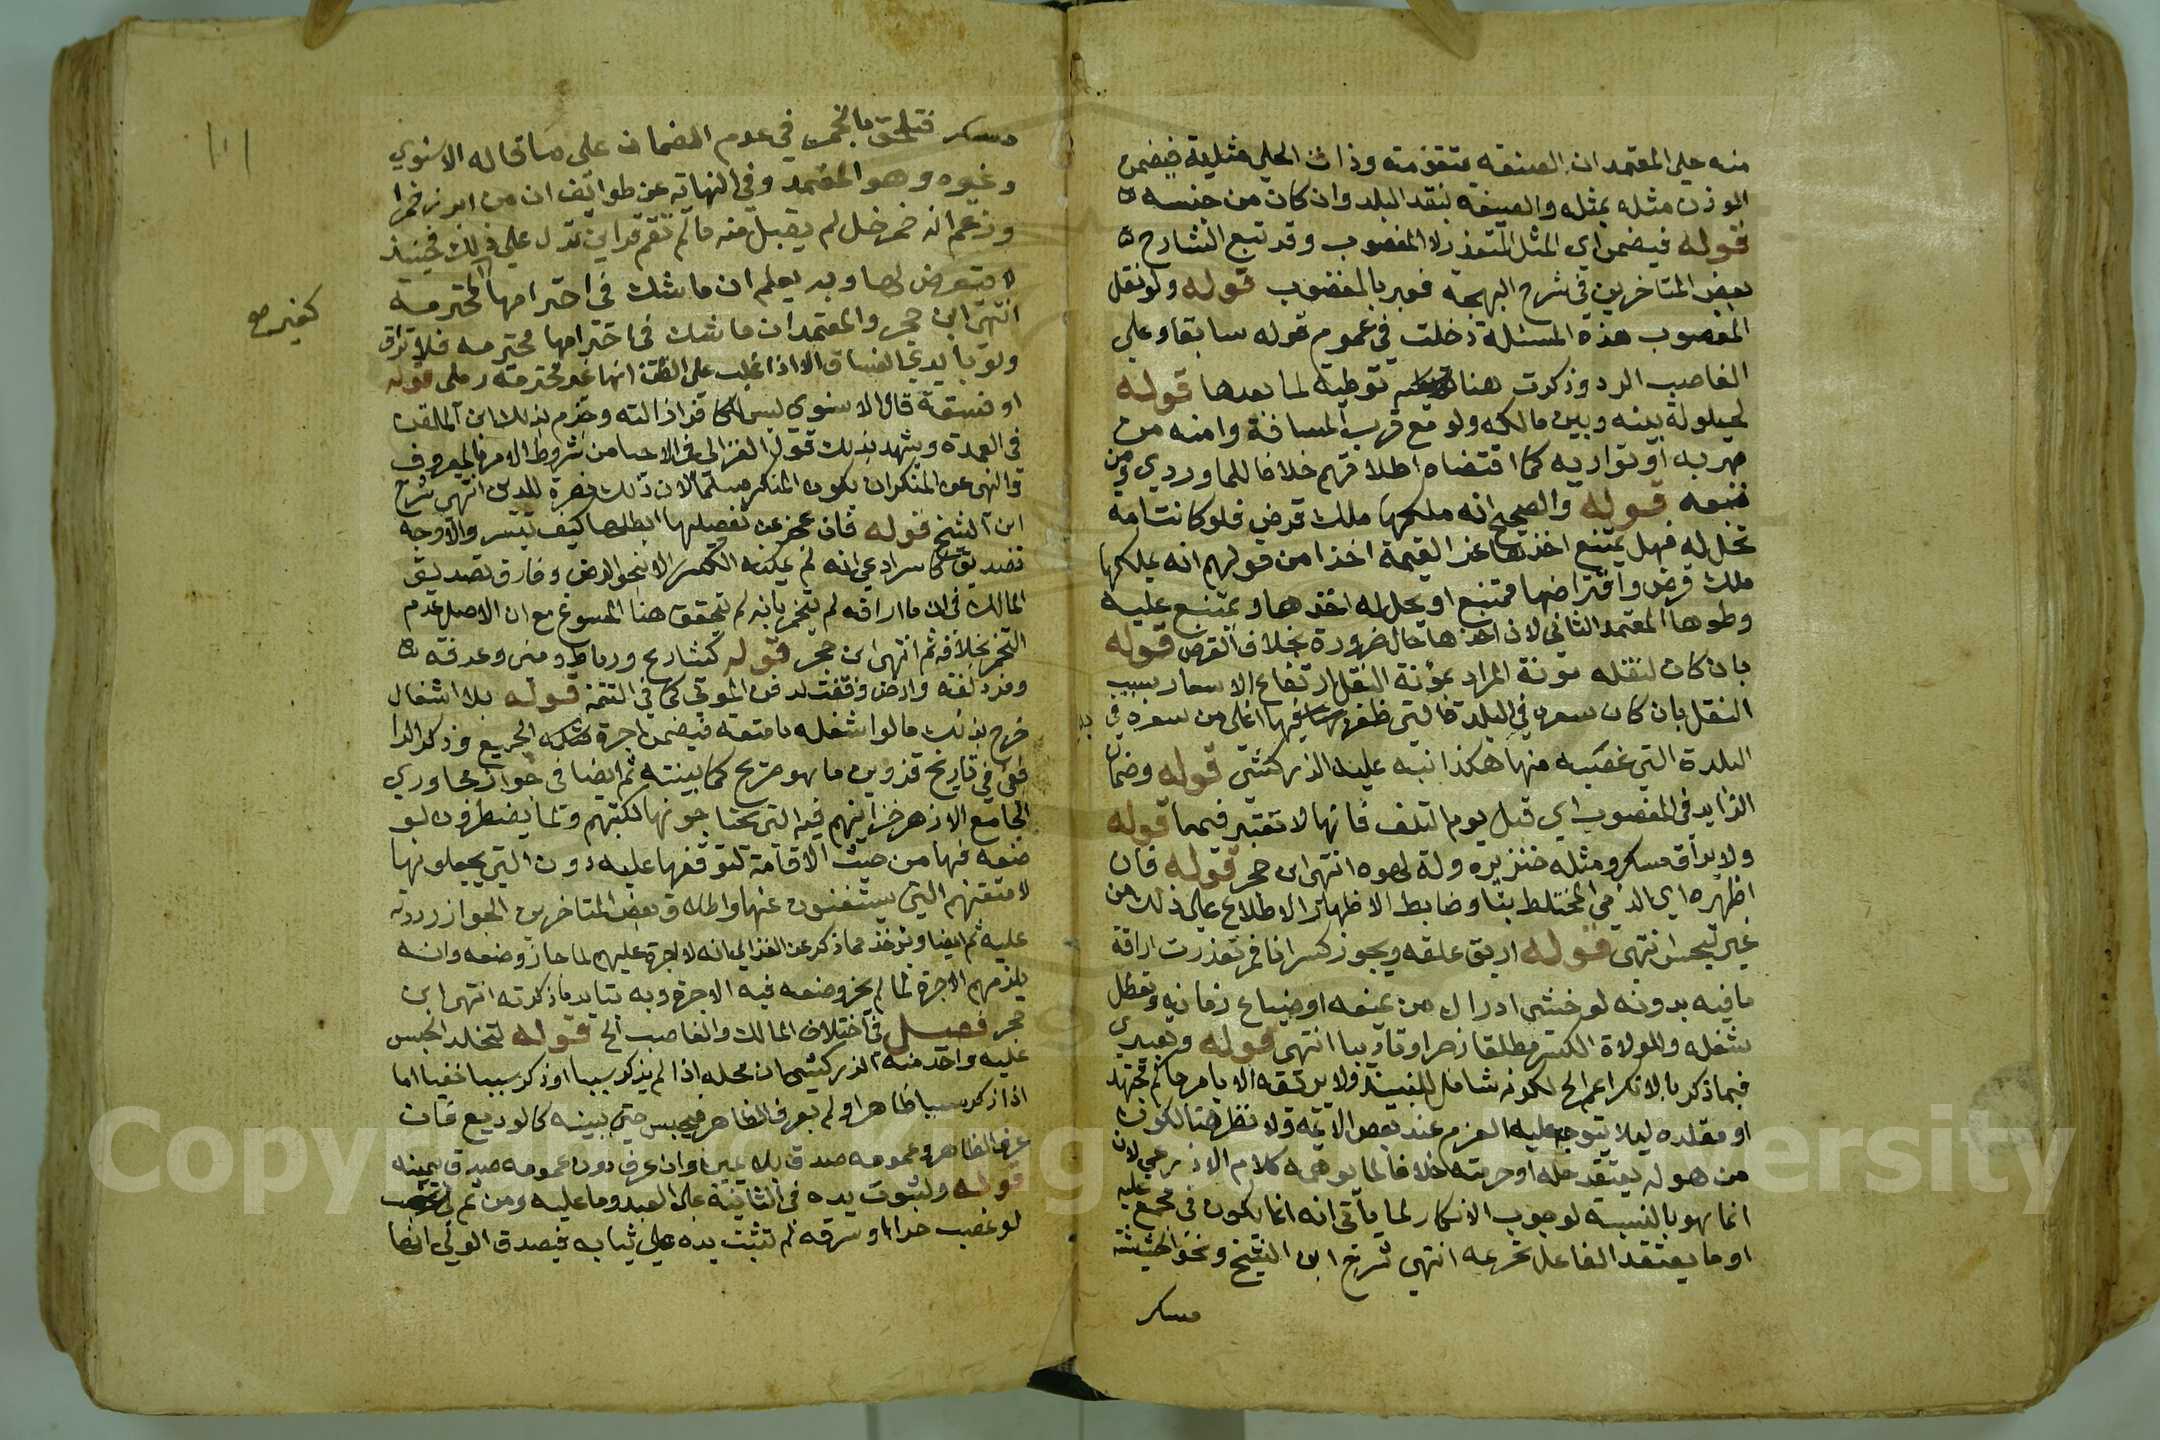 منه حلي المعتمد ان الصنعة متقومة وذات الحلي مثلية فيضمن
الموزن مثله بمثله والصنعة بنقد البلد وان كان من جنسه
قوله فيضمن اي المثل المتعذر لا المغصوب وقد تبع الشارح
بعض المتاخرين في شرح البهجة فعبر بالمغصوب قوله ولو نقل
المغصوب هذه المسئلة دخلت في عموم قوله سابقا وعلي
الغاصب الرد وذكرت هنا توطية لما بعدها قوله
لحيلولة بينه وبين مالكه ولو مع قرب المسافة وامنه من
هربه او تواريه كما اقتضاه اطلاقهم خلافا للماوردي ومن
تبعه قوله والصحيح انه ملكها ملك قرض فلو كانت امة
تحل له فهل يمتنع اخذها عن القيمة اخذا من قولهم انه يملكها
ملك قرض واقتراضها ممتنع او يحل له اخذها ويمتنع عليه
وطوها المعتمد الثاني لان اخذها حال ضرورة بخلاف القرض قوله
بان كان لنقله مونة المراد بمؤنة النقل ارتفاع الاسعار بسبب
النقل بان كان سعره في البلدة التي ظفر به فيها اغلى من سعره في
البلدة التي غصبه منها هكذا نبه عليه الزركشي قوله وضمان
الزايد في المغصوب اي قبل يوم التلف فانها لا تعتبر قوله
ولا يراق مسكر ومثله خنزيره والة لهوه انتهى ابن حجر قوله فان
اظهره اي الذمي المختلط بنا وضابط الاظهار الاطلاع علي ذلك من
غير تجسس انتهى قوله اريق علقه ويجوز كسر انا خمر تعذرت اراقة
ما فيه بدونه لو خشي ادراك من يمنعه او ضياع زمانه وتعطل
شغله وللولاة الكسر مطلقا زجرا وتاديبا انتهى قوله وتعبيري
فيما ذكر بالانكر اعم الخ لكونه شامل للنبيذ ولا يريقه الا بامر حاكم مجتهد
او مقلده ليلا يتوجه عليه الغرم عند بعض الائمة ولا نظر هنا لكون
من هو له يعتقد حله او حرمته خلافا لما يوهمه كلام الاذرعي لان
انما هو بالنسبة لوجوب الانكار لما ياتي انه انما يكون في مجمع عليه
او ما يعتقد الفاعل تحريمه انتهى شرح ابن الشيخ ونحو الحشيشة
مسكر
مسكر فتلحق بالخمر في عدم الضمان على ما قاله الاسنوي
وغيره وهو المعتمد وفي النهاية عن طوائف ان من ابرز خمرا
وزعم انه خمر خل لم يقبل منه ما لم تقم قراين تدل علي ذلك فحينئذ
لا يتعرض لها وبه يعلم ان ما شك في احترامها المحترمة
انتهى ابن حجر والمعتمد ان ما شك في احترامها محترمة فلا تراق
ولو بايدي الفساق الا اذا غلب على الظن انها غير محترمة رملي قوله
او فسقة قال الاسنوي ليس للكافر ازالته وجزم بذلك ابن الملقن
في العمدة ويشهد بذلك قول الغزالي في الاحيا من شروط الامر بالمعروف
والنهي عن المنكر ان يكون المنكر مسلما لان ذلك نصرة للدين انتهى شرح
ابن الشيخ قوله فان عجز عن تفصيلها ابطلها كيف تيسر والاوجه
تصديق كاسر ادعى انه لم يمكنه الكسر الا بنحو الرض وفارق تصديق
المالك في ان ما اراقه لم يتخمر بانه لم يتحقق هنا المسوغ مع ان الاصل عدم
التخمر بخلافه ثم انتهى ابن حجر قوله كشارع ورباط ومنى وعرفة
ومزدلفة وارض وقفت لدفن الموتى كما في التتمة قوله بلا اشغال
خرج بذلك ما لو اشغله بامتعة فيضمن اجرة الجميع وذكر الرا
فعي في تاريخ قزوين ما هو صريح كما بينته ثم ايضا في جواز مجاوري
الجامع الازهر خزاينهم فيه التي يحتاجونها لكتبهم ولما يضطرون لو
ضعه فيها من حيث الاقامة لتوقفها عليه دون التي يجعلونها
لامتعتهم التي يستغنون عنها واطلاق بعض المتاخرين الجواز رددته
عليه ثم ايضا ويوخذ مما ذكر عن الغزالي انه لا اجرة عليهم لما جاز وضعه وانه
يلزمهم الاجرة لما لم يجز وضعه فيه الاجرة وبه يتايد ما ذكرته انتهى ابن
حجر فصل في اختلاف المالك والغاصب الخ قوله لتخلد الحبس
عليه واخذ منه الزركشي ان محله اذا لم يذكر سببا او ذكر سببا خفيا اما
اذا ذكر سببا ظاهرا ولم يعرف الظاهر فيحبس حتى يبينه كالوديع فان
عرف الظاهر وعمومه صدق بلا يمين وان عرف دون عمومه صدق بيمينه
قوله ولثبوت يده في الثانية على العبد وما عليه ومن ثم
لو غصب حرا او سرقه لم تثبت يده علي ثيابه فيصدق الولي انها